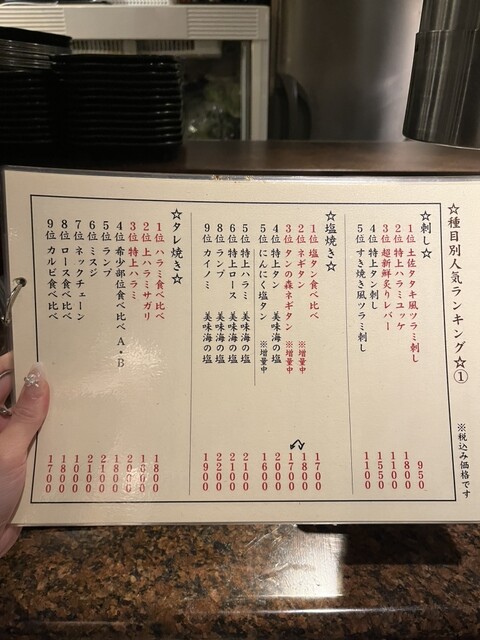 ☆種目別人気ランキング☆①
※税込み価格です
☆刺し☆
1位 土佐タタキ風ツラミ刺し 950
2位 特上ハラミユッケ 1800
3位 超新鮮炙りレバー 1000
4位 特上タン刺し 1550
5位 すき焼き風ツラミ刺し 1100
☆塩焼き☆
1位 塩タン食べ比べ 1700
2位 ネギタン ※増量中 1800
3位 タンの森ネギタン ※増量中 1700
4位 特上タン 美味海の塩 2000
5位 にんにく塩タン ※増量中 1600
5位 特上ハラミ 美味海の塩 2100
6位 特上ロース 美味海の塩 2100
8位 ランプ 美味海の塩 2200
9位 カイノミ 美味海の塩 1900
☆タレ焼き☆
1位 ハラミ食べ比べ 1800
2位 上ハラミサガリ 1300
3位 特上ハラミ 2000
4位 希少部位食べ比べA・B 1800
5位 ランプ 2100
6位 ミスジ 2100
7位 ネックチェーン 1000
8位 ロース食べ比べ 1800
9位 カルビ食べ比べ 1700